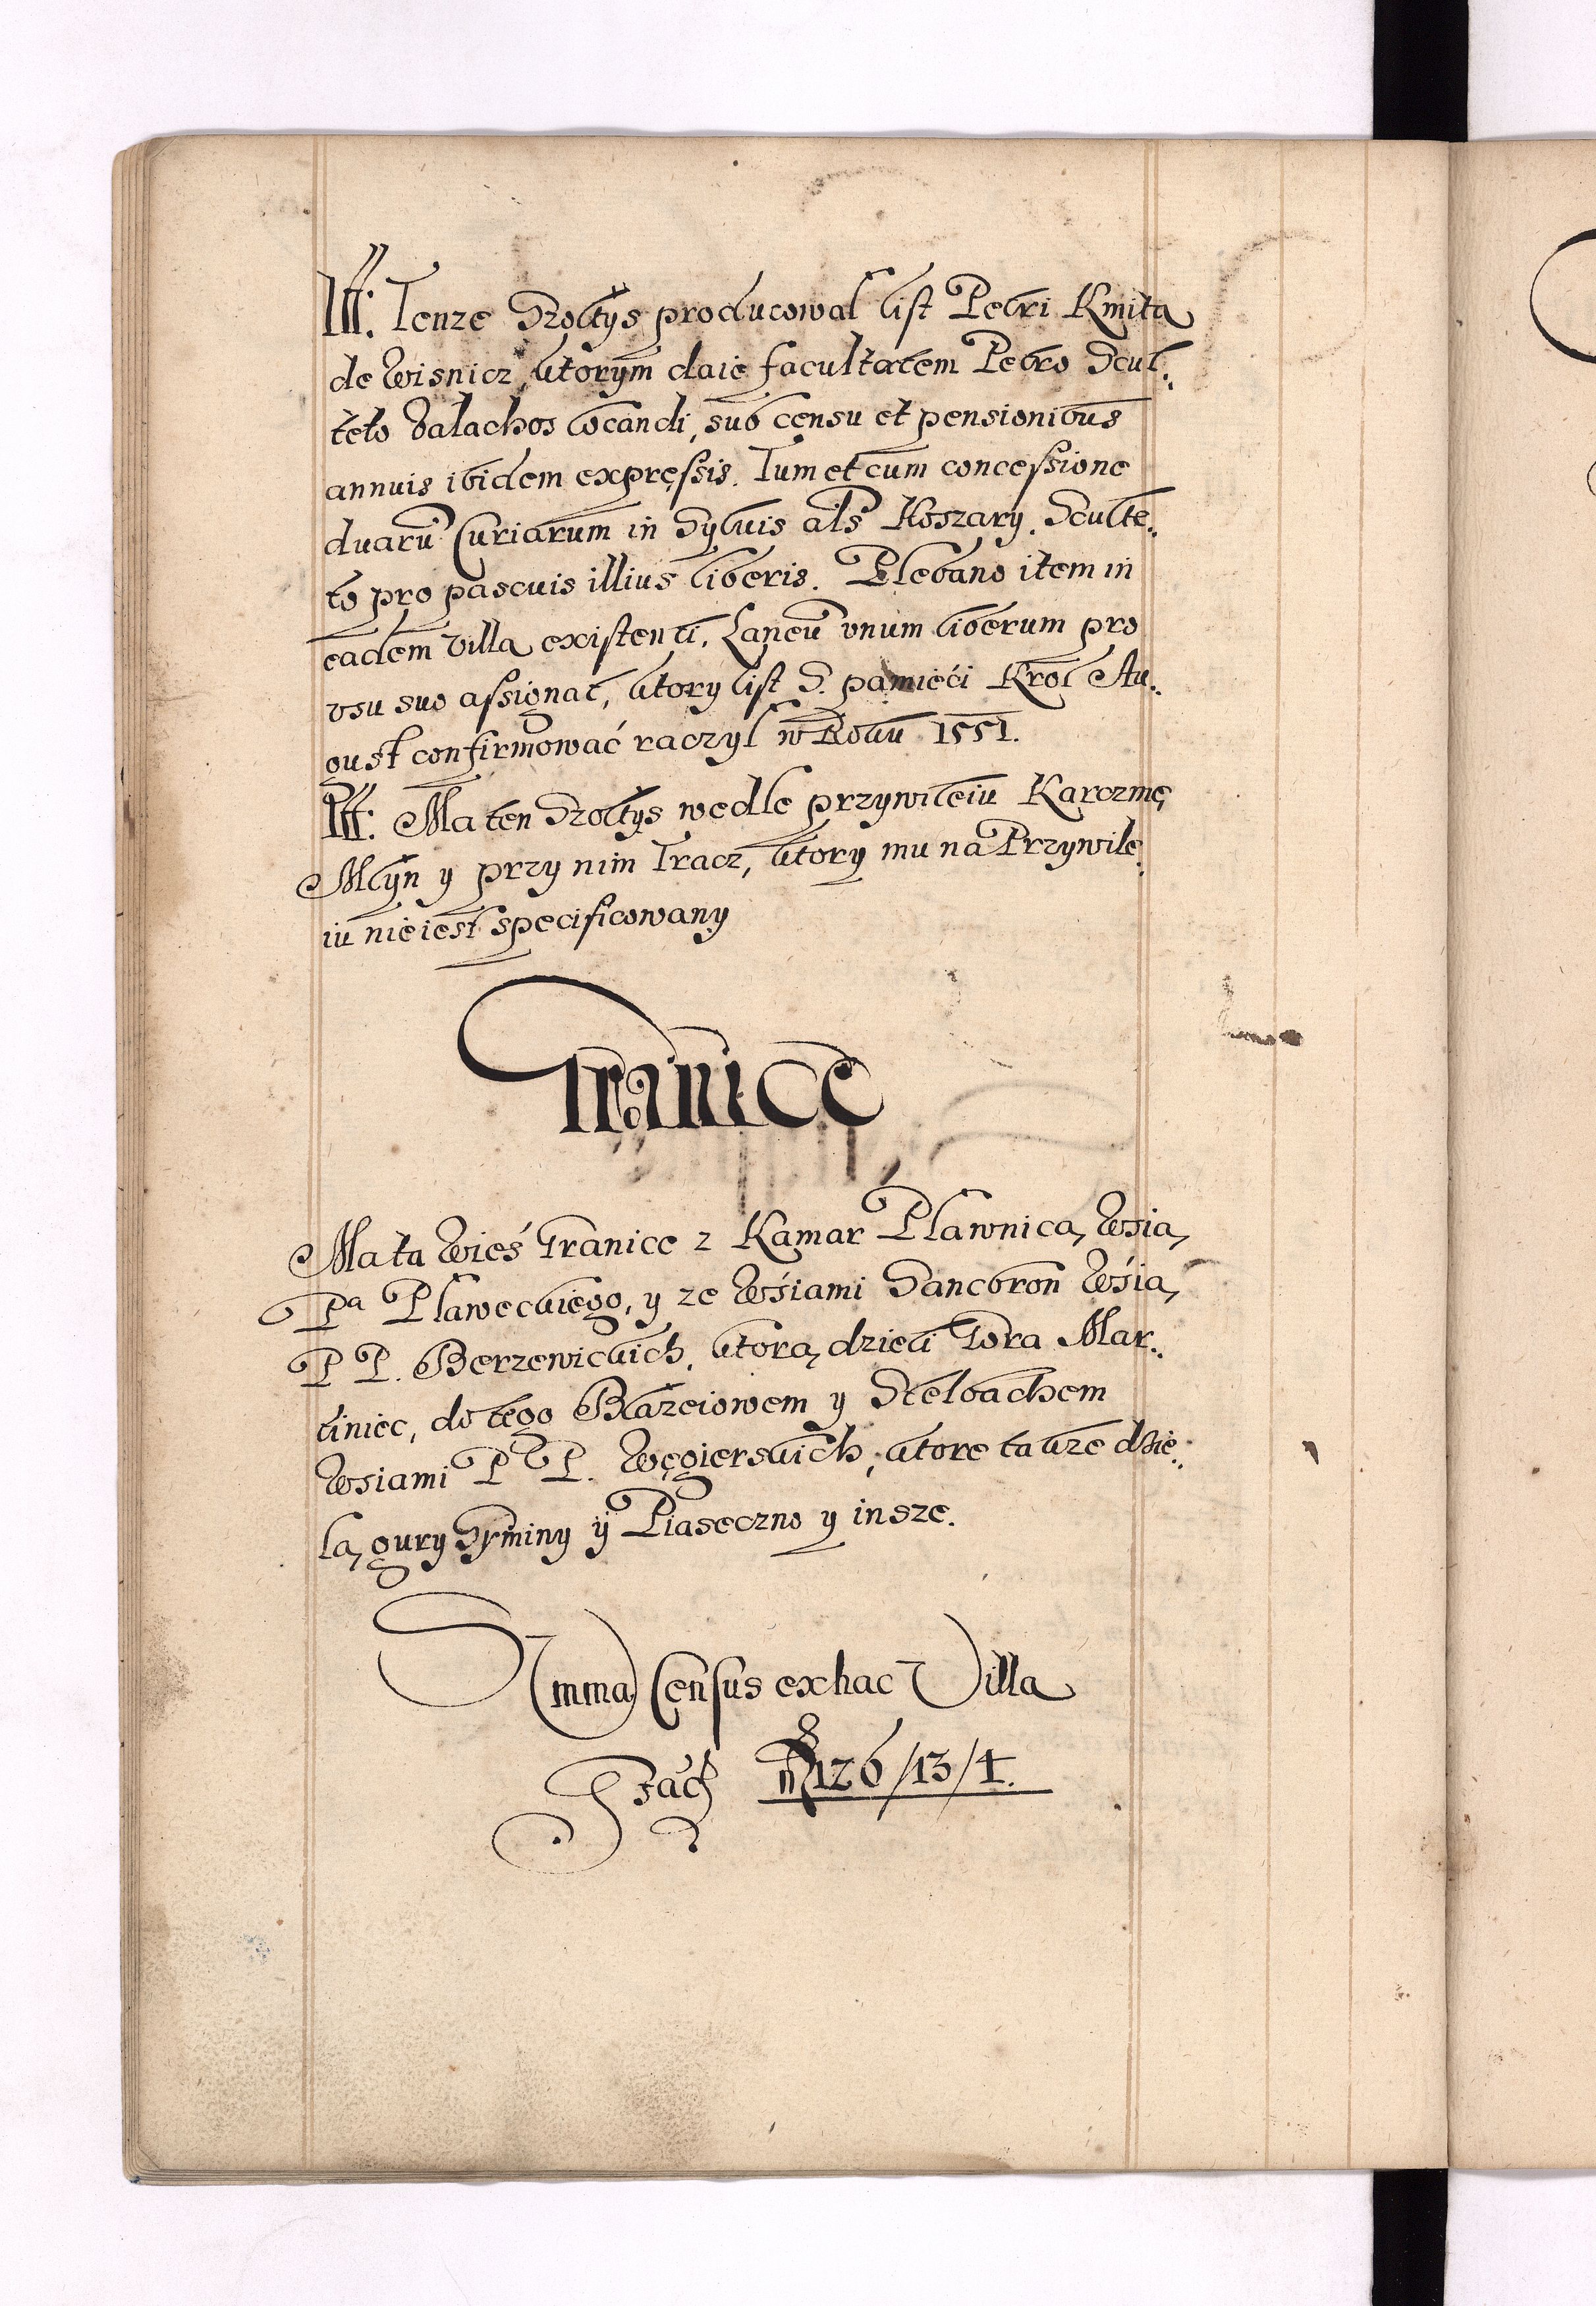 Iɟɟ: Tenze Szołtys producował list Petri Kmita
de Wisnicz, ktorym daie facultatem Petro Scul:
teto Valachos locandi, sub censu et pensionibus
annuis ibidem expressis. Tum et cum concessione
duarū Curiarum in Syluis al̄s Koszary. Sculte:
to pro pascuis illius liberis. Plebano item in
eadem villa existenti. Laneū vnum liberum pro
vsu suo assignat, ktory list S. pamięći Krol Au:
gust confirmować raczył w Roku 1551.
Iɟɟ: Ma ten Szołtys wedle przywileiu Karczmę
Młyn y przy nim Tracz, ktory mu na Przywile:
iu nie iest specificowany
Granice
Ma ta Wieś Granice z Kamar Pławnicą, Wsią,
Pa Pławeckiego, y ze Wśiami Sancbron Wśią,
P P. Berzewickich, ktorą dzieli Gora Mar:
tiniec, do tego Błazeiowem y Stelbachem
Wsiami P P. Węgierskich, ktore takze dzie:
lą, gury Syminy ÿ Piaseczno y insze.
Summa Census ex hac Villa
facit 126/13/4.